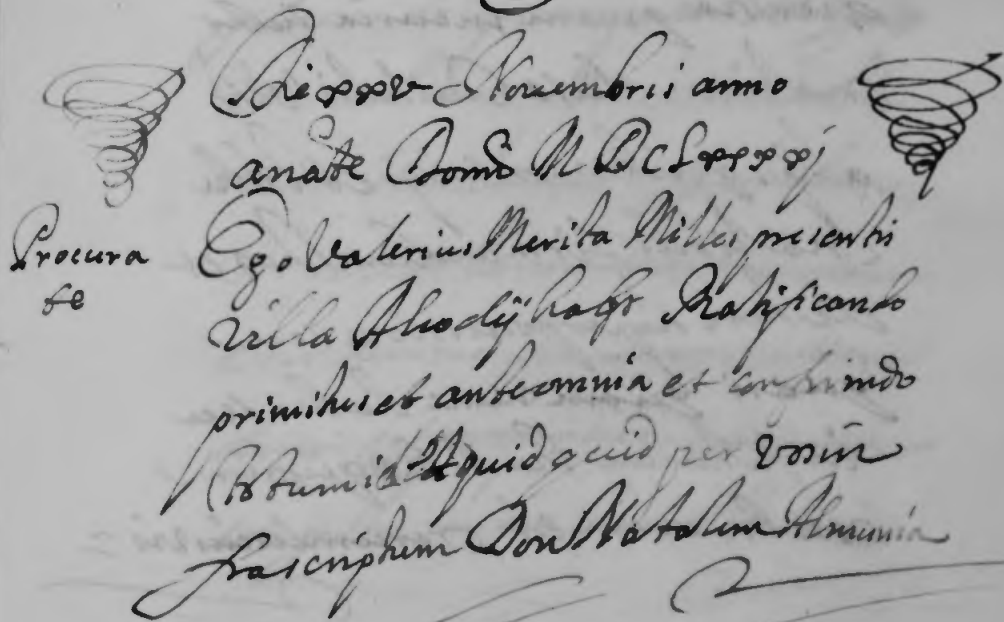 Die xxv Novembris anno
anate Domi M DC Lxxxxj
Procura
te
Ego Valerius Merita Miles presentis
villa Alcodij habr Ratificando
primitus et ante omnia et confirmando
totum id et quid quid per vos in
frascriptum Don Natalem Almunia